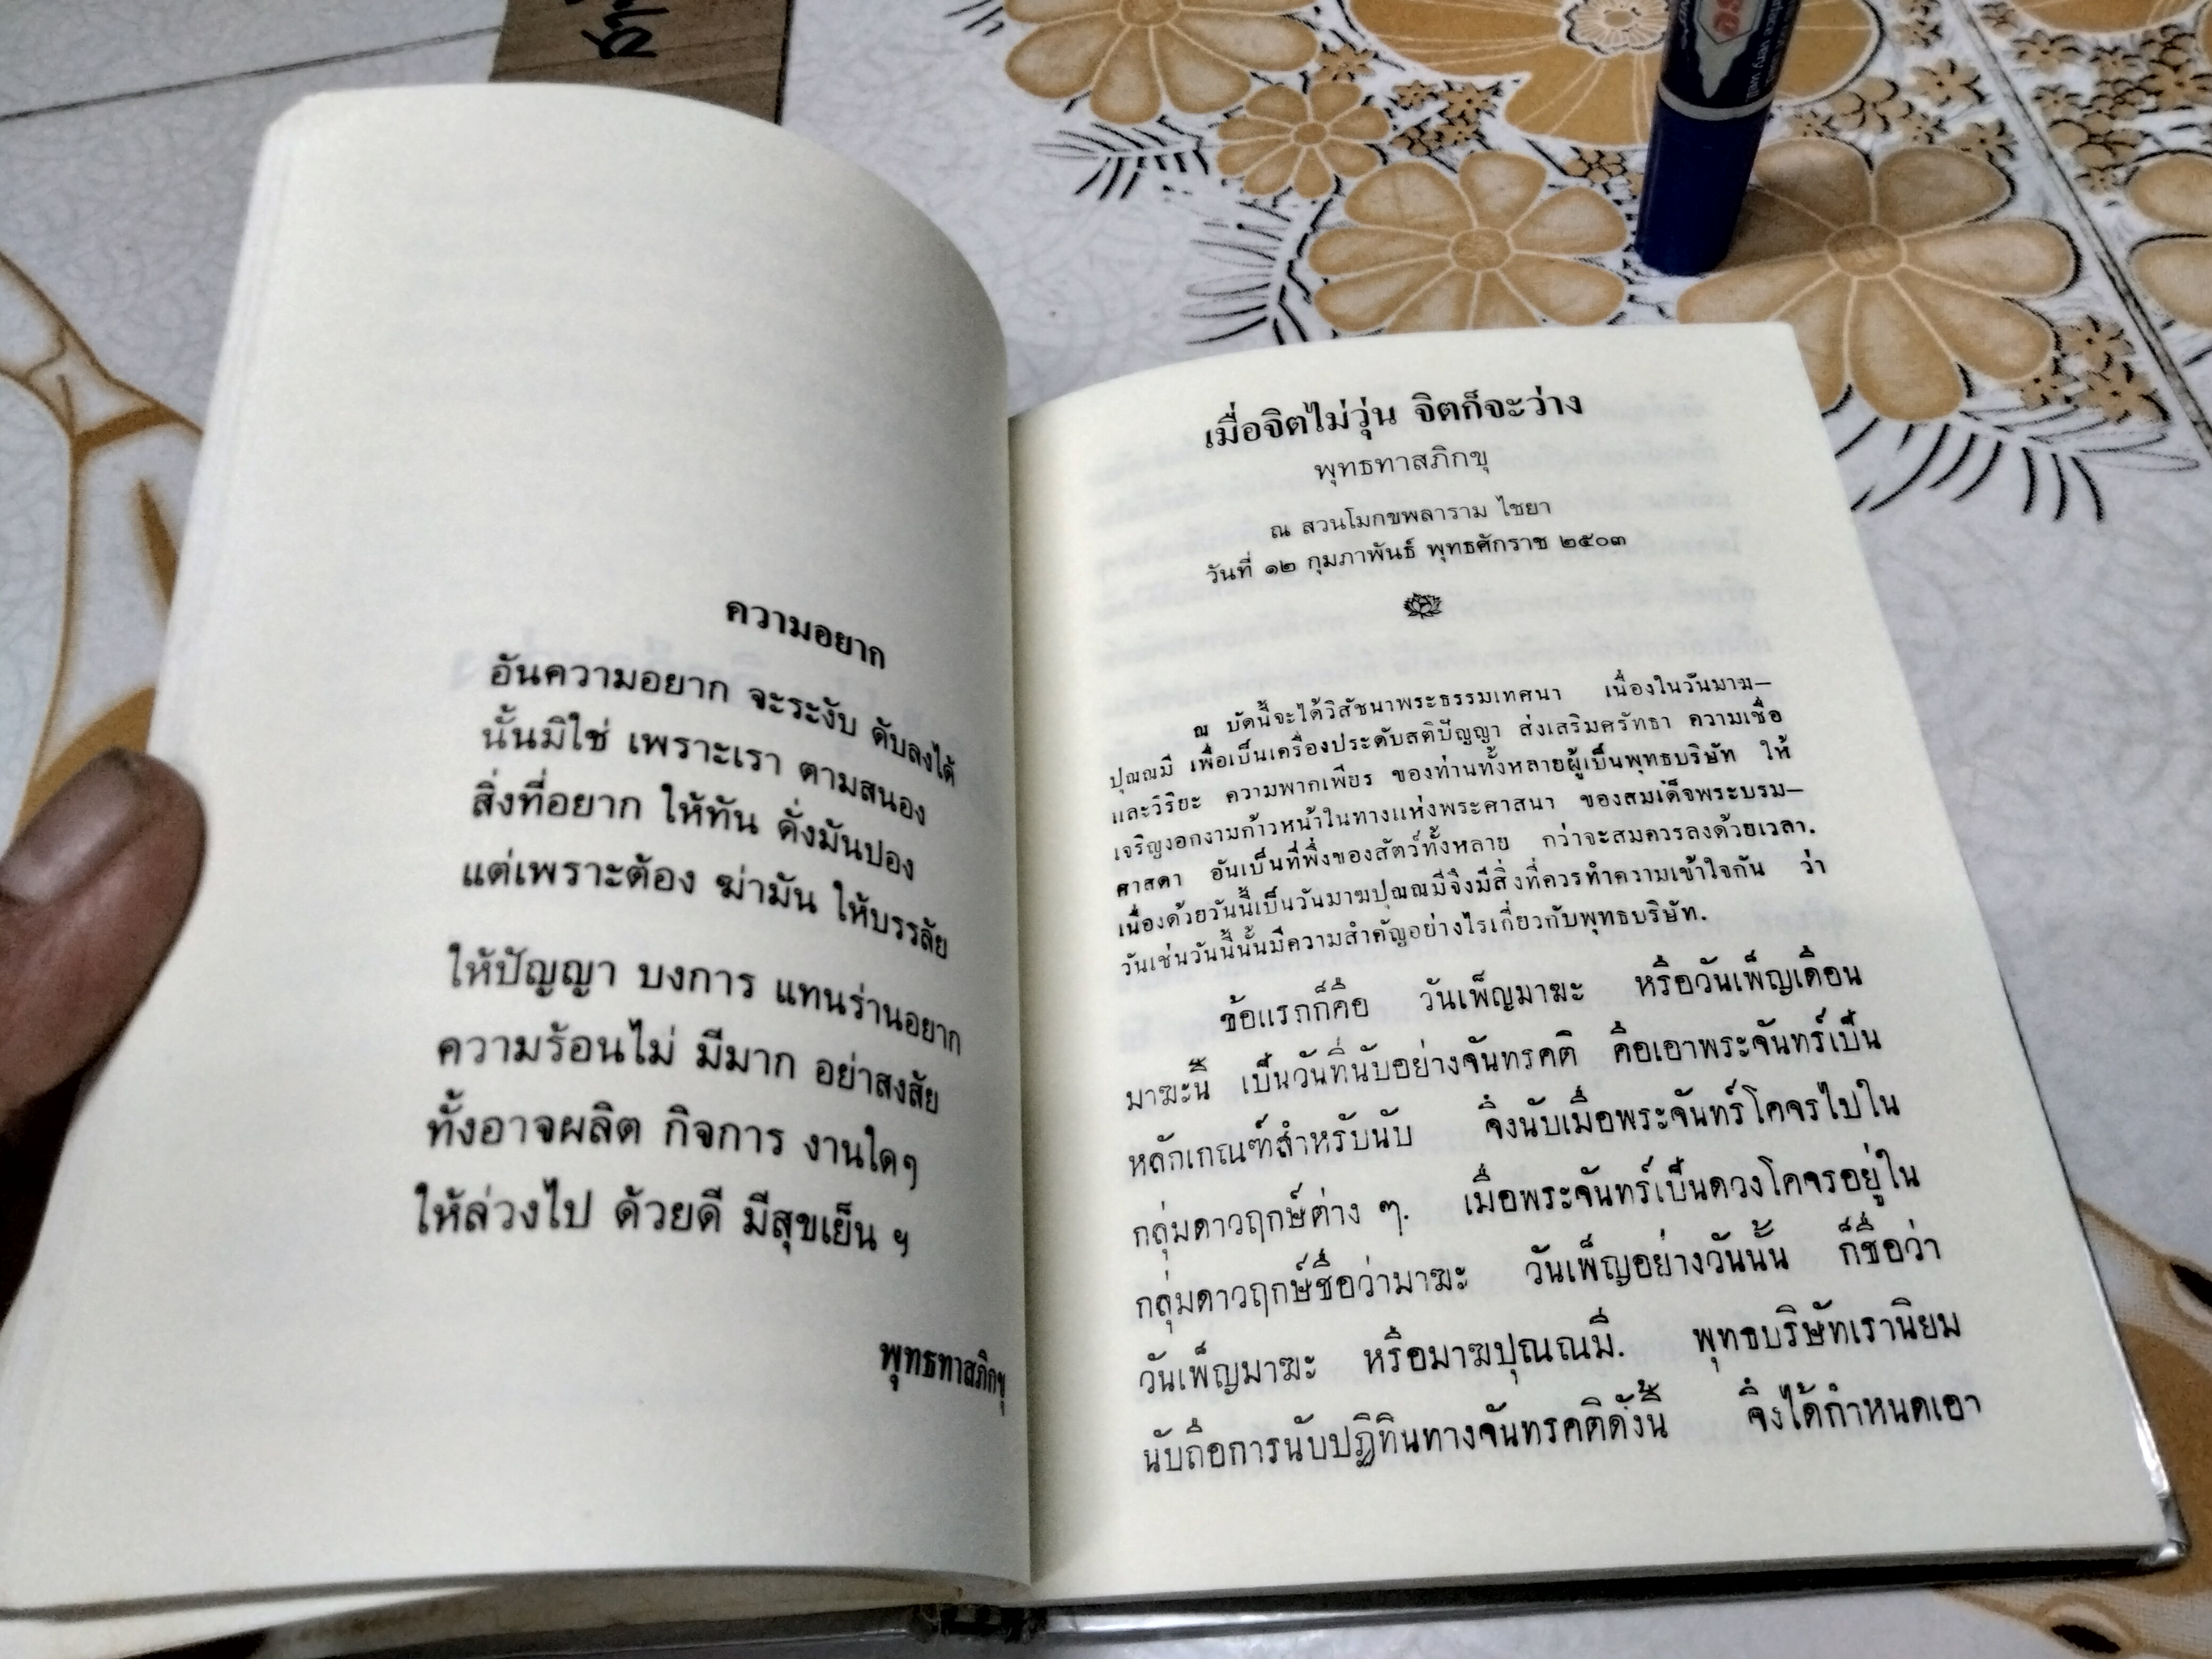 ความอยาก
อันความอยาก จะระงับ ดับลงได้
นั้นมิใช่ เพราะเรา ตามสนอง
สิ่งที่อยาก ให้ทัน ดั่งมันปอง
แต่เพราะต้อง ฆ่ามัน ให้บรรลัย
ให้ปัญญา บงการ แทนร่านอยาก
ความร้อนไม่ มีมาก อย่าสงสัย
ทั้งอาจผลิต กิจการ งานใดๆ
ให้ล่วงไป ด้วยดี มีสุขเย็น ฯ
พุทธทาสภิกขุ
เมื่อจิตไม่วุ่น จิตก็จะว่าง
พุทธทาสภิกขุ
ณ สวนโมกขพลาราม ไชยา
วันที่ ๑๒ กุมภาพันธ์ พุทธศักราช ๒๕๐๓
ณ บัดนี้จะได้วิสัชนาพระธรรมเทศนา เนื่องในวันมาฆ–
ปุณณมี เพื่อเป็นเครื่องประดับสติปัญญา ส่งเสริมศรัทธา ความเชื่อ
และวิริยะ ความพากเพียร ของท่านทั้งหลายผู้เป็นพุทธบริษัท ให้
เจริญงอกงามก้าวหน้าในทางแห่งพระศาสนา ของสมเด็จพระบรม–
ศาสดา อันเป็นที่พึ่งของสัตว์ทั้งหลาย กว่าจะสมควรลงด้วยเวลา.
เนื่องด้วยวันนี้เป็นวันมาฆปุณณมีจึงมีสิ่งที่ควรทำความเข้าใจกัน ว่า
วันเช่นวันนี้นั้นมีความสำคัญอย่างไรเกี่ยวกับพุทธบริษัท.
ข้อแรกก็คือ วันเพ็ญมาฆะ หรือวันเพ็ญเดือน
มาฆะนี้ เป็นวันที่นับอย่างจันทรคติ คือเอาพระจันทร์เป็น
หลักเกณฑ์สำหรับนับ จึงนับเมื่อพระจันทร์โคจรไปใน
กลุ่มดาวฤกษ์ต่าง ๆ. เมื่อพระจันทร์เป็นดวงโคจรอยู่ใน
กลุ่มดาวฤกษ์ชื่อว่ามาฆะ วันเพ็ญอย่างวันนั้น ก็ชื่อว่า
วันเพ็ญมาฆะ หรือมาฆปุณณมี. พุทธบริษัทเรานิยม
นับถือการนับปฏิทินทางจันทรคติดังนี้ จึงได้กำหนดเอา